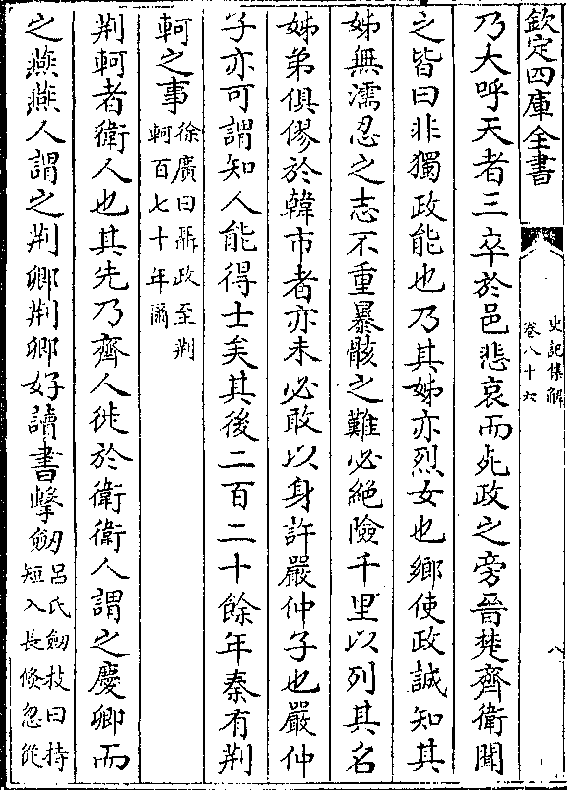 欽定四庫全書
史記集解
卷八十六
八
乃大呼天者三卒於邑悲哀而死政之旁晉楚齊衛聞
之皆曰非獨政能也乃其姊亦烈女也鄉使政誠知其
姊無濡忍之志不重暴骸之難必絶險千里以列其名
姊弟俱僇於韓市者亦未必敢以身許嚴仲子也嚴仲
子亦可謂知人能得士矣其後二百二十餘年秦有荆
軻之事徐廣曰聶政至荆
軻百七十年爾
荆軻者衛人也其先乃齊人徙於衛衛人謂之慶卿而
之燕燕人謂之荆卿荆卿好讀書擊劒吕氏劒技曰持
短入長倐忽從